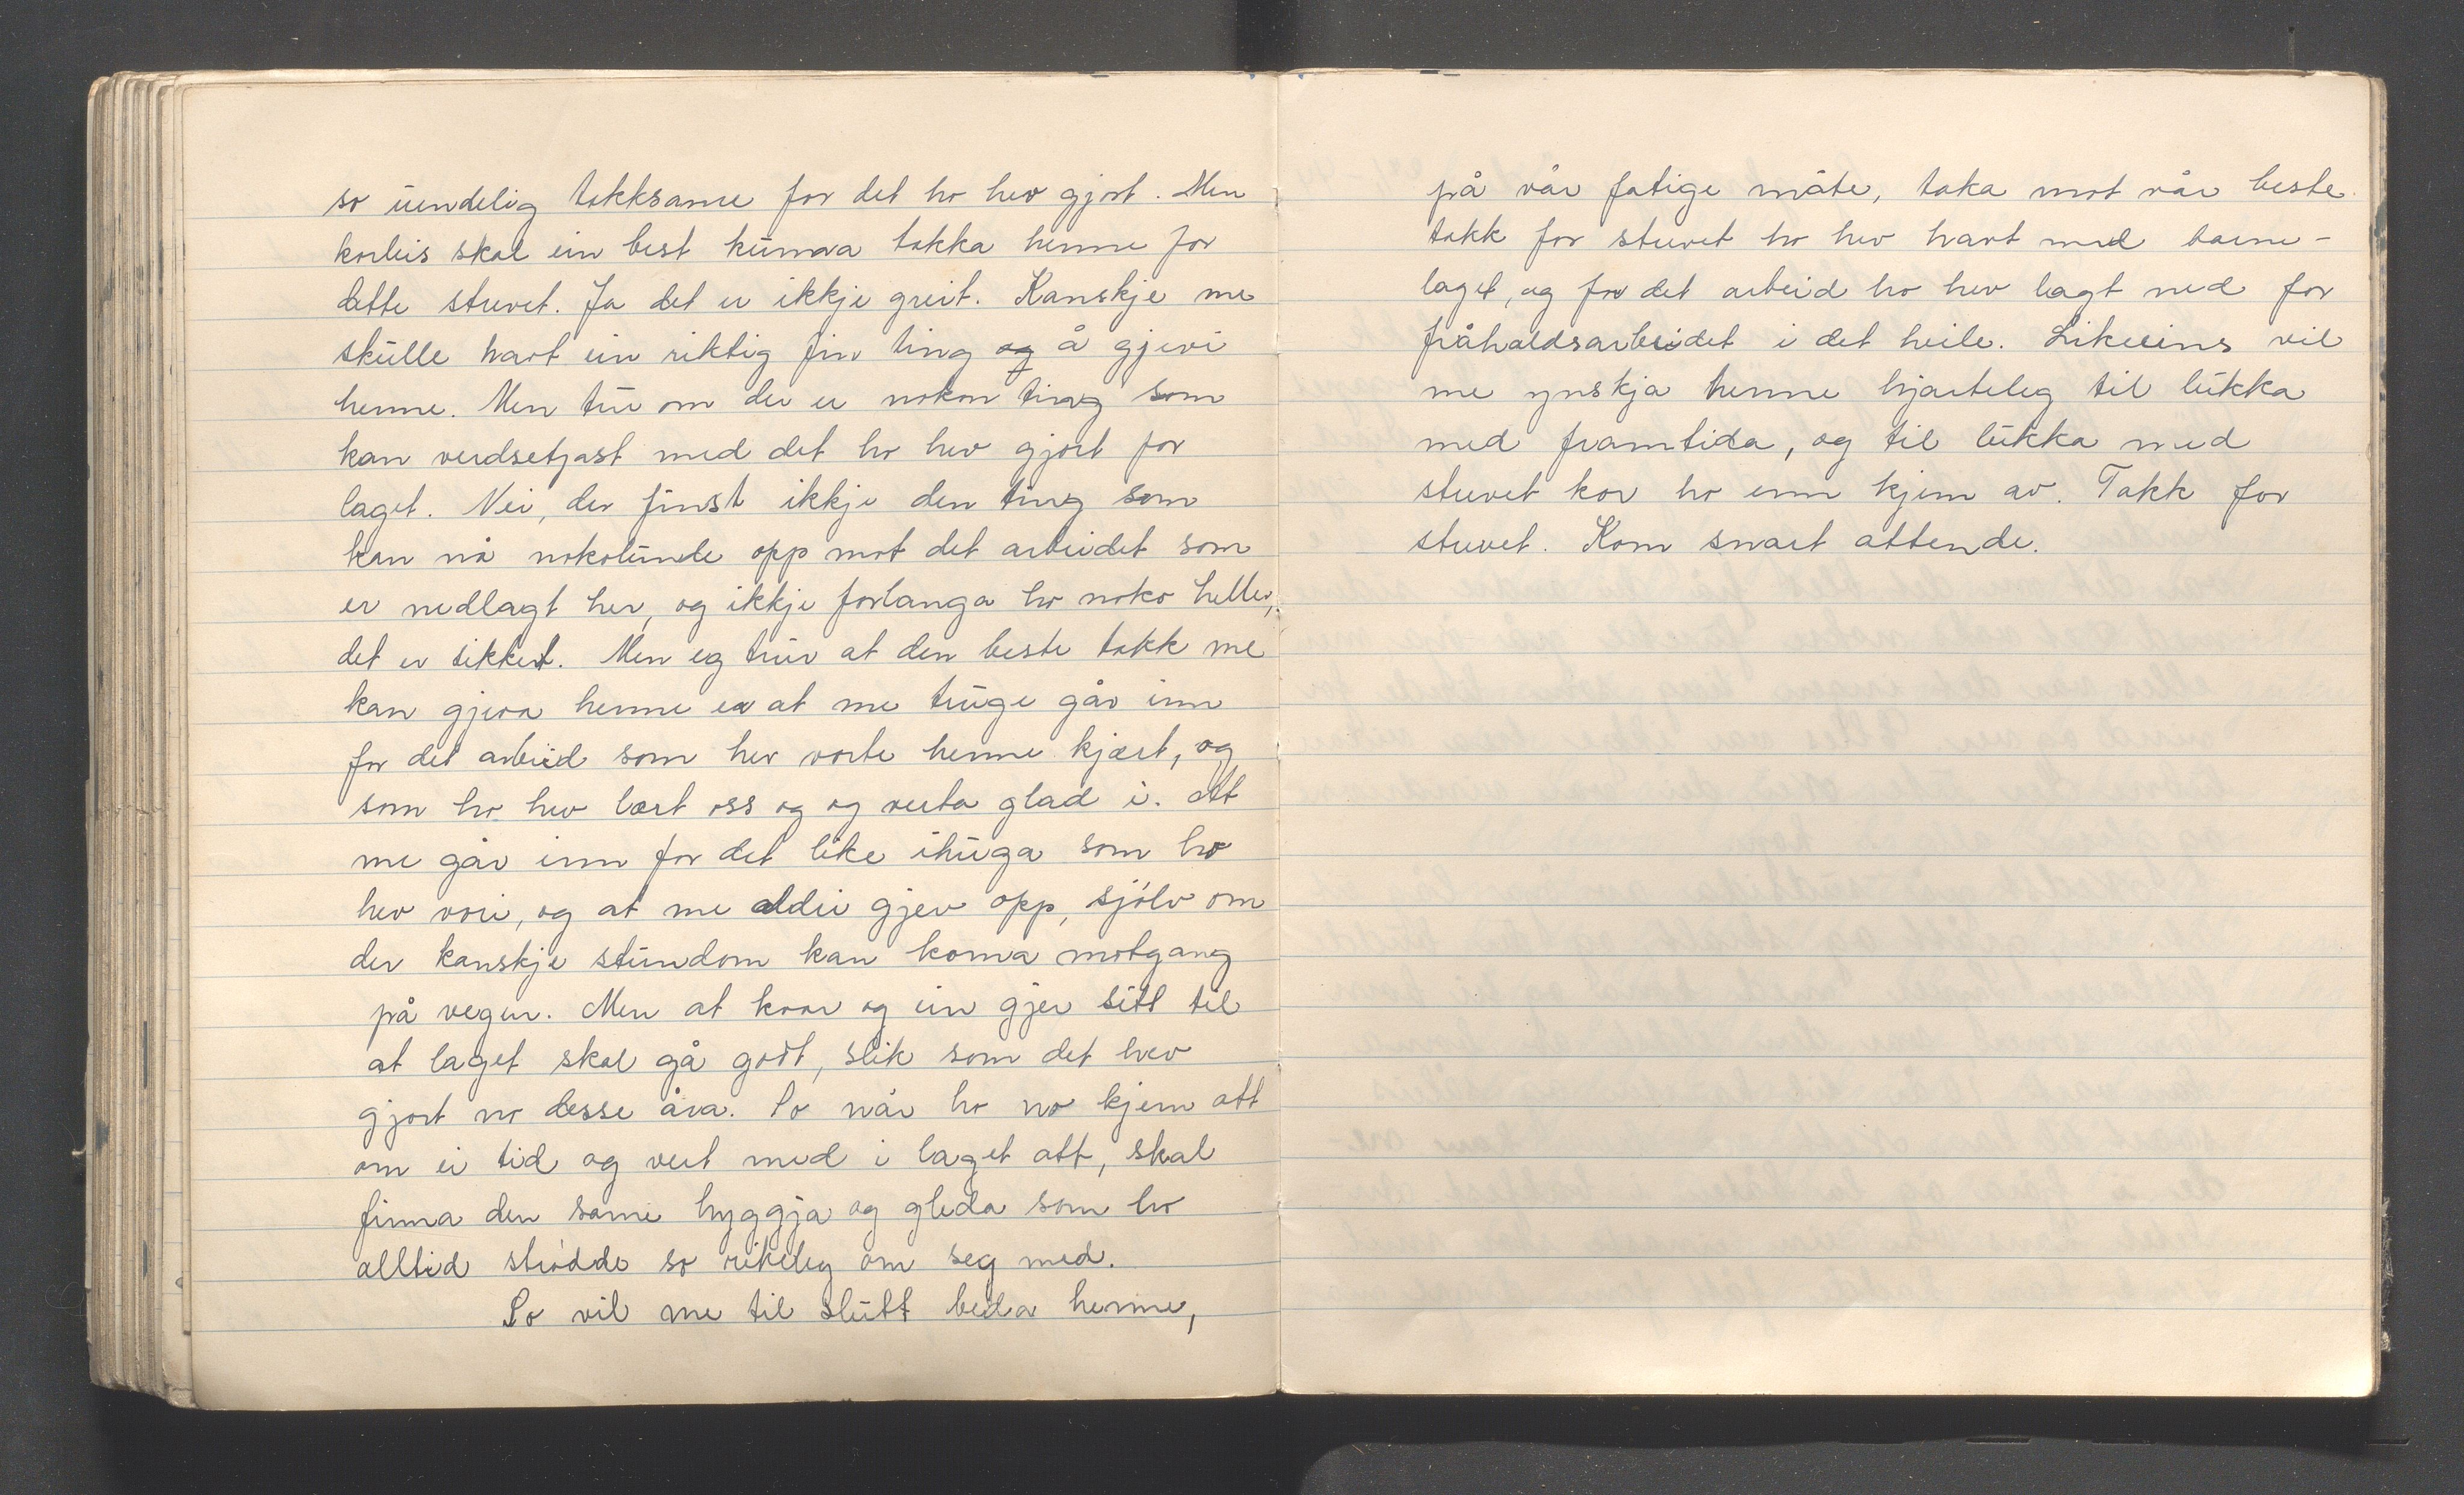 so uendelig takksame for det ho hev gjort. Men
korleis skal ein best kunna takka henne for
dette strevet. Ja det er ikkje greit. Kanskje me
skulle havt ein riktig fin ting og å gjevi
henne. Men tru om der er nokon ting som
kan verdsetjast med det ho hev gjort for
laget. Nei, der finst ikkje den ting som
kan nå nokolunde opp mot det arbeidet som
er nedlagt her, og ikkje forlanga ho noko heller,
det er sikkert. Men eg trur at den beste takk me
kan gjeva henne er at me truge går inn
for det arbeid som hev vorte henne kjært, og
som ho hev lært oss og og verta glad i. Att
me går inn for det like ihuga som ho
hev vori, og at me aldri gjev opp, sjølv om
der kanskje stundom kan koma motgang
på vegen. Men at kvar og ein gjer sitt til
at laget skal gå godt, slik som det hev
gjort no desse åra. So når ho no kjem att
om ei tid og vert med i laget att, skal
finna den same hyggja og gleda som ho
alltid strødde so rikeleg om seg med.
So vil me til slutt beda henne,
på vår fatige måte, taka mot vår beste
takk for strevet ho hev havt med barne-
laget, og for det arbeid ho hev lagt ned for
fråhaldsarbeidet i det heile. Likeeins vil
me ynskja henne hjarteleg til lukka
med framtida, og til lukka med
strevet kor ho enn kjem av. Takk for
strevet. Kom snart attende.